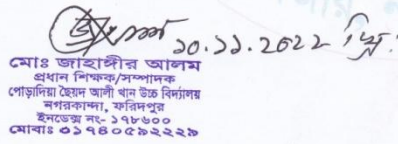 ১০.১১.২০২২ খ্রি:
মোঃ জাহাঙ্গীর আলম
প্রধান শিক্ষক/সম্পাদক
পোড়াদিয়া ছৈয়দ আলী খান উচ্চ বিদ্যালয়
নগরকান্দা, ফরিদপুর
ইনডেক্স নং- ১৭৮৬০০
মোবাঃ ০১৭৪০৫৯২২২৯